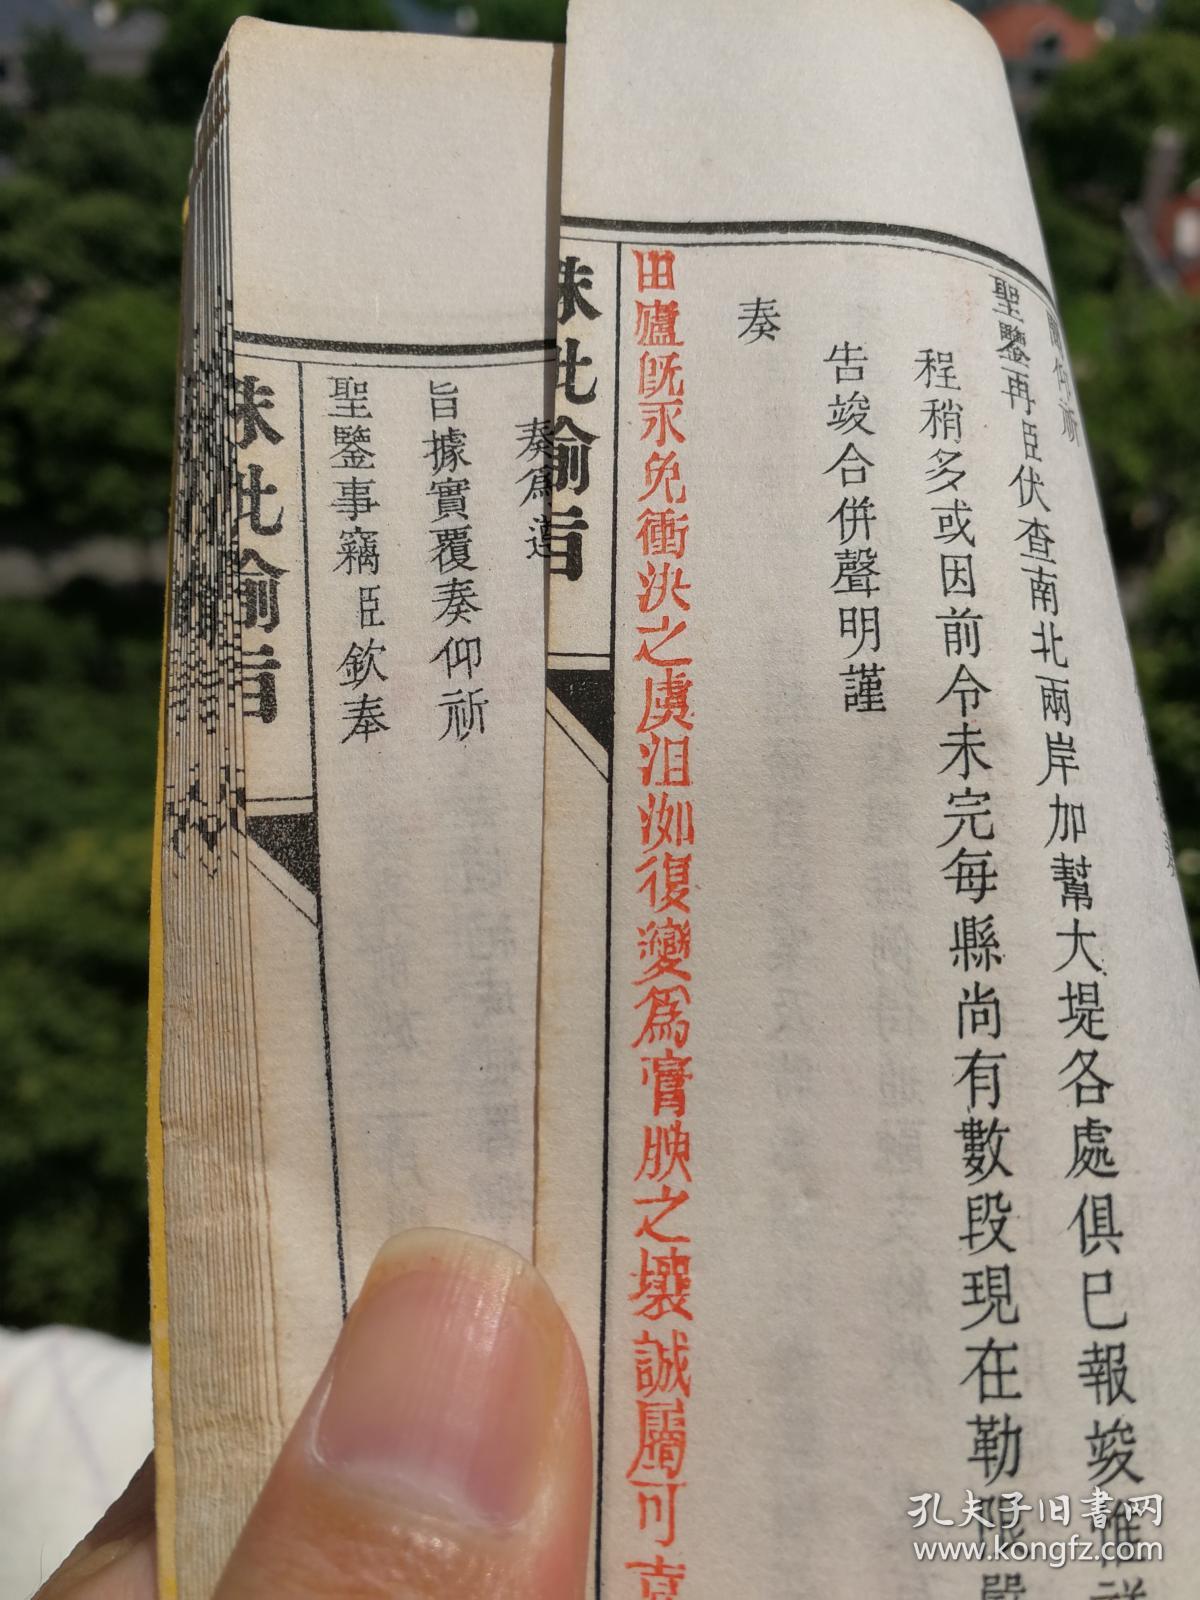 聖鑒再臣伏查南北兩岸加幫大堤各處俱巳報竣惟
程稍多或因前令未完每縣尚有數段現在勒限嚴
告竣合併聲明謹
奏
田廬既永免衝決之虞沮洳復變為膏腴之壤誠屬可
硃批諭旨
奏為遵
旨據實覆奏仰祈
聖鑒事竊臣欽奉
硃批諭旨
孔夫子旧书网
www.kongfz.com